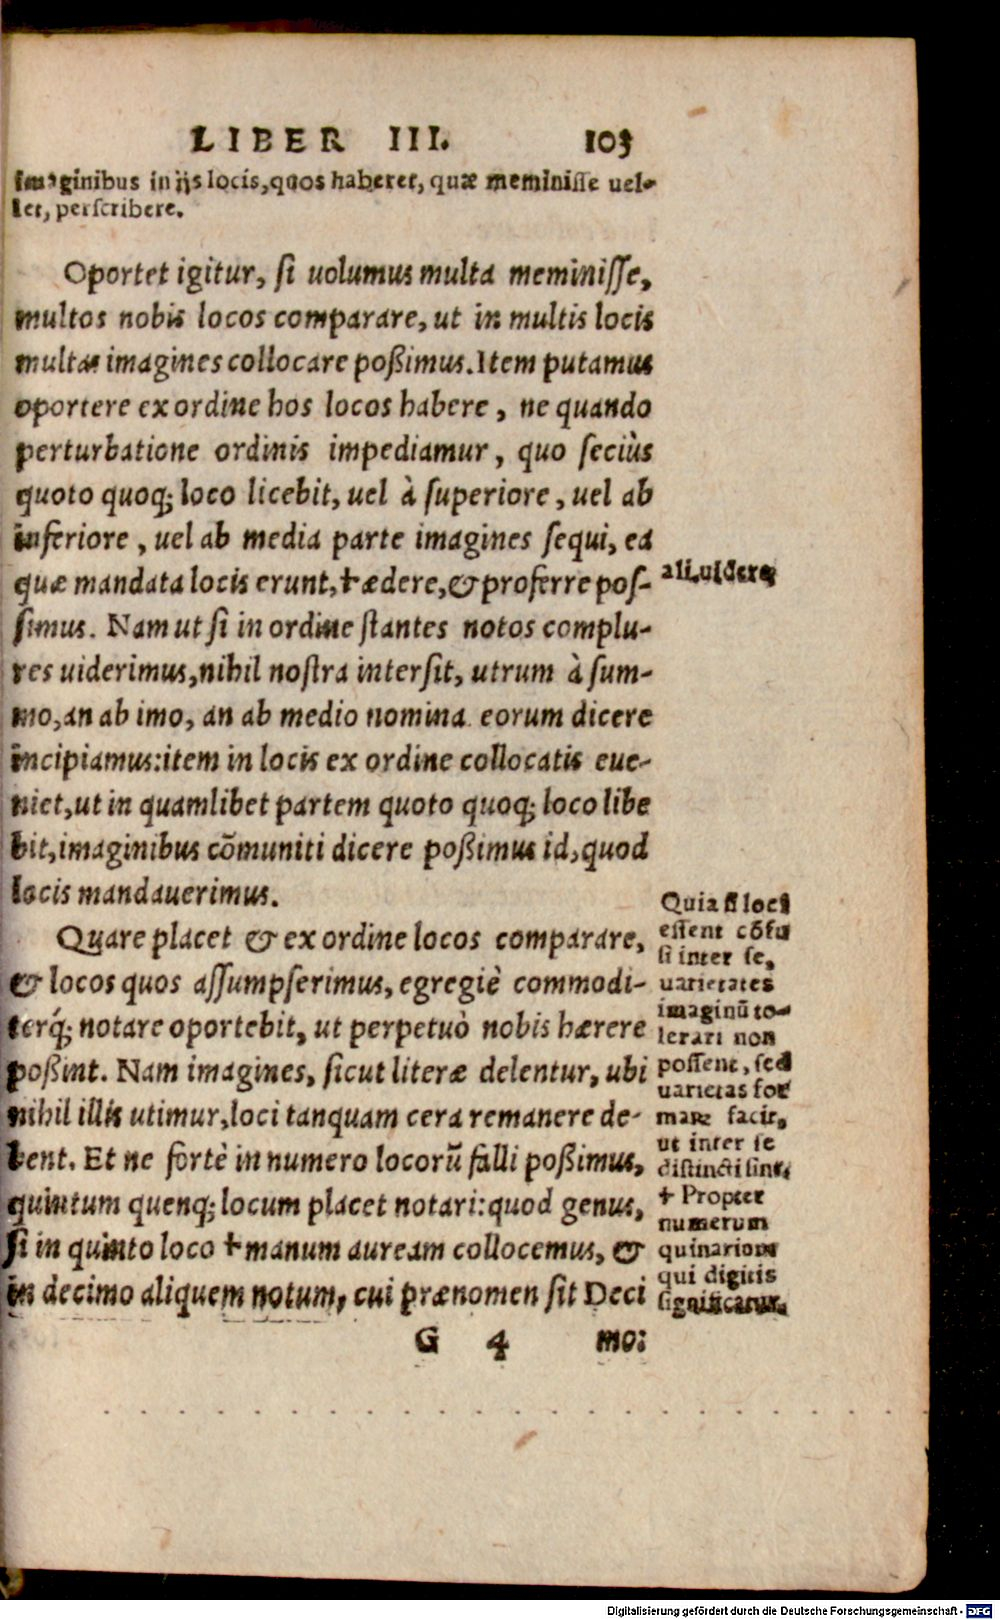 LIBER III. 103
imaginibus in ijs locis, quos haberet, quæ meminisse uel-
let, perscribere.
Oportet igitur, si uolumus multa meminisse,
multos nobis locos comparare, ut in multis locis
multas imagines collocare poßimus. Item putamus
oportere ex ordine hos locos habere, ne quando
perturbatione ordinis impediamur, quo seciùs
quoto quoq; loco licebit, uel à superiore, uel ab
inferiore, uel ab media parte imagines sequi, ea
quæ mandata locis erunt, †ædere, & proferre pos-
simus. Nam ut si in ordine stantes notos complu-
res uiderimus, nihil nostra intersit, utrum à sum-
mo, an ab imo, an ab medio nomina eorum dicere
incipiamus: item in locis ex ordine collocatis eue-
niet, ut in quamlibet partem quoto quoq; loco libe
bit, imaginibus cõmuniti dicere poßimus id, quod
locis mandauerimus.
Quare placet & ex ordine locos comparare,
& locos quos assumpserimus, egregiè commodi-
terq́; notare oportebit, ut perpetuò nobis hærere
poßint. Nam imagines, sicut literæ delentur, ubi
nihil illis utimur, loci tanquam cera remanere de-
bent. Et ne fortè in numero locorũ falli poßimus,
quintum quenq; locum placet notari: quod genus,
si in quinto loco †manum auream collocemus, &
in decimo aliquem notum, cui prænomen sit Deci
G 4 mo:
ali. uidere,
Quia si loci
essent cõfu
si inter se,
uarietates
imaginũ to-
lerari non
possent, sed
uarietas for
mare facit,
ut inter se
distincti sint.
† Propter
numerum
quinarium
qui digitis
significatur.
Digitalisierung gefördert durch die Deutsche Forschungsgemeinschaft - DFG